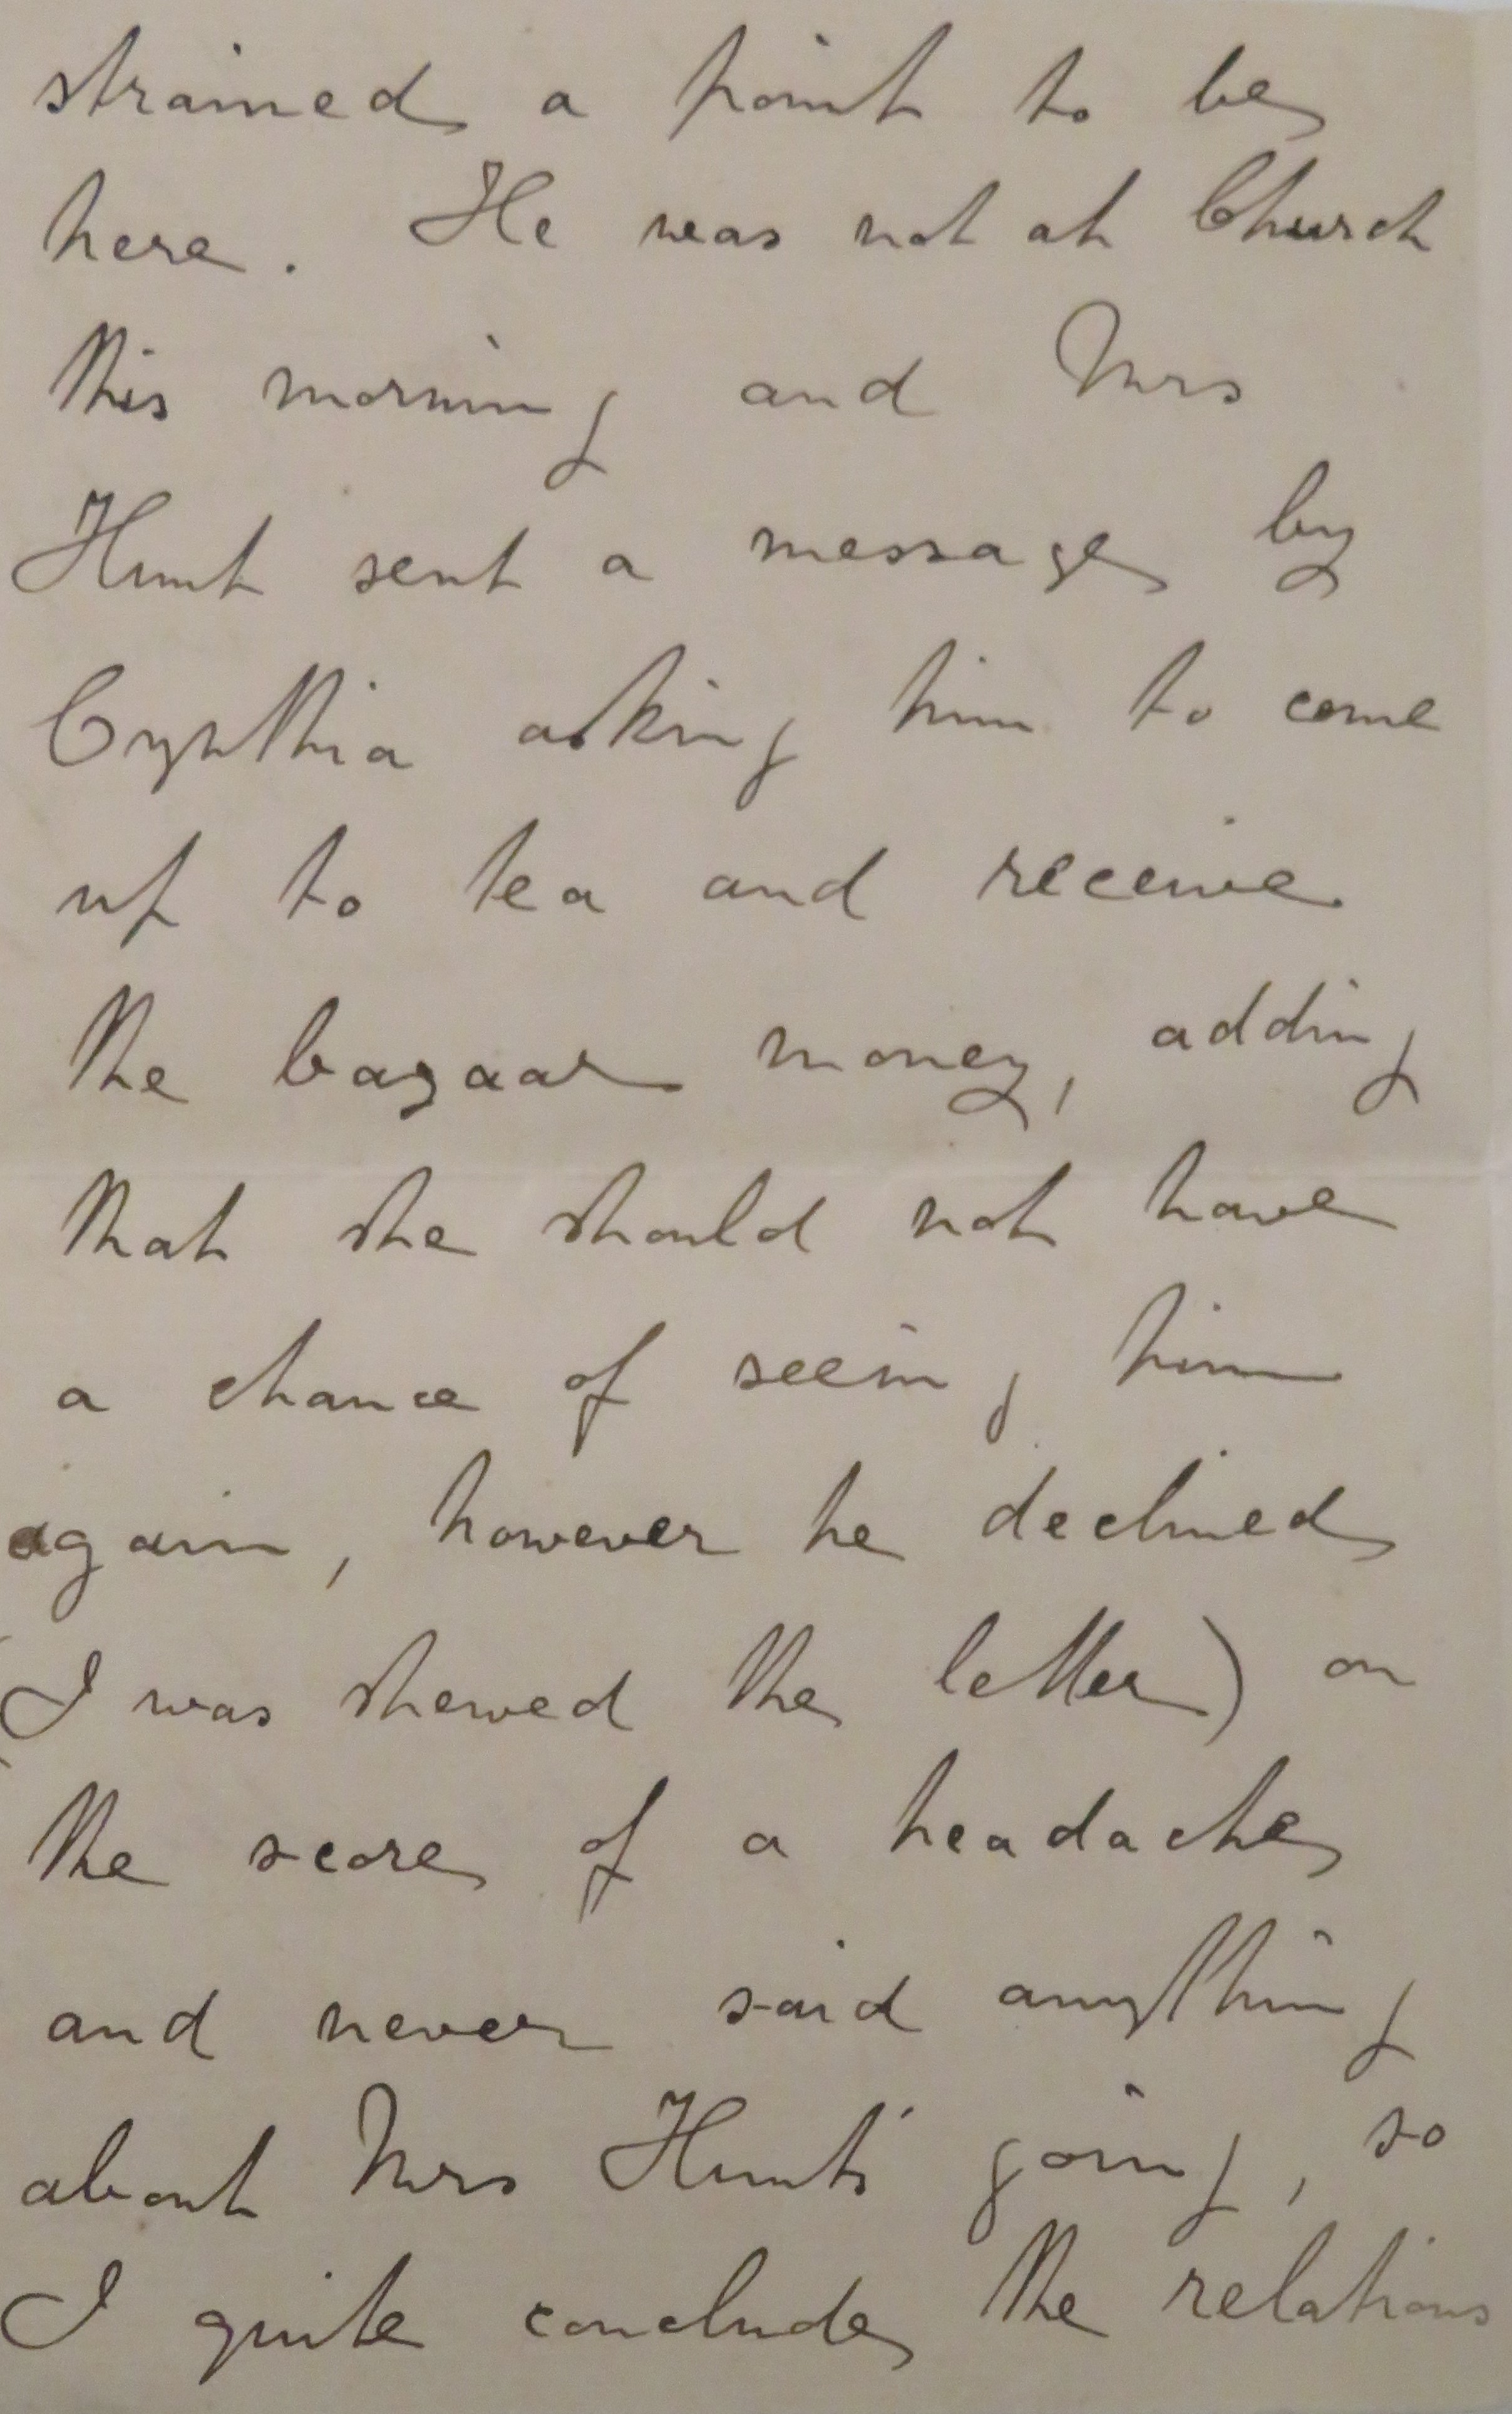 strained a point to be
here. He was not at Church
this morning and Mrs
Hunt sent a message by
Cynthia asking him to come
up to tea and receive
the bazaar money, adding
that she should not have
a chance of seeing him
again, however he declined
(I was shewed the letter) on
the score of a headache
and never said anything
about Mrs Hunt's going, so
I quite conclude the relations